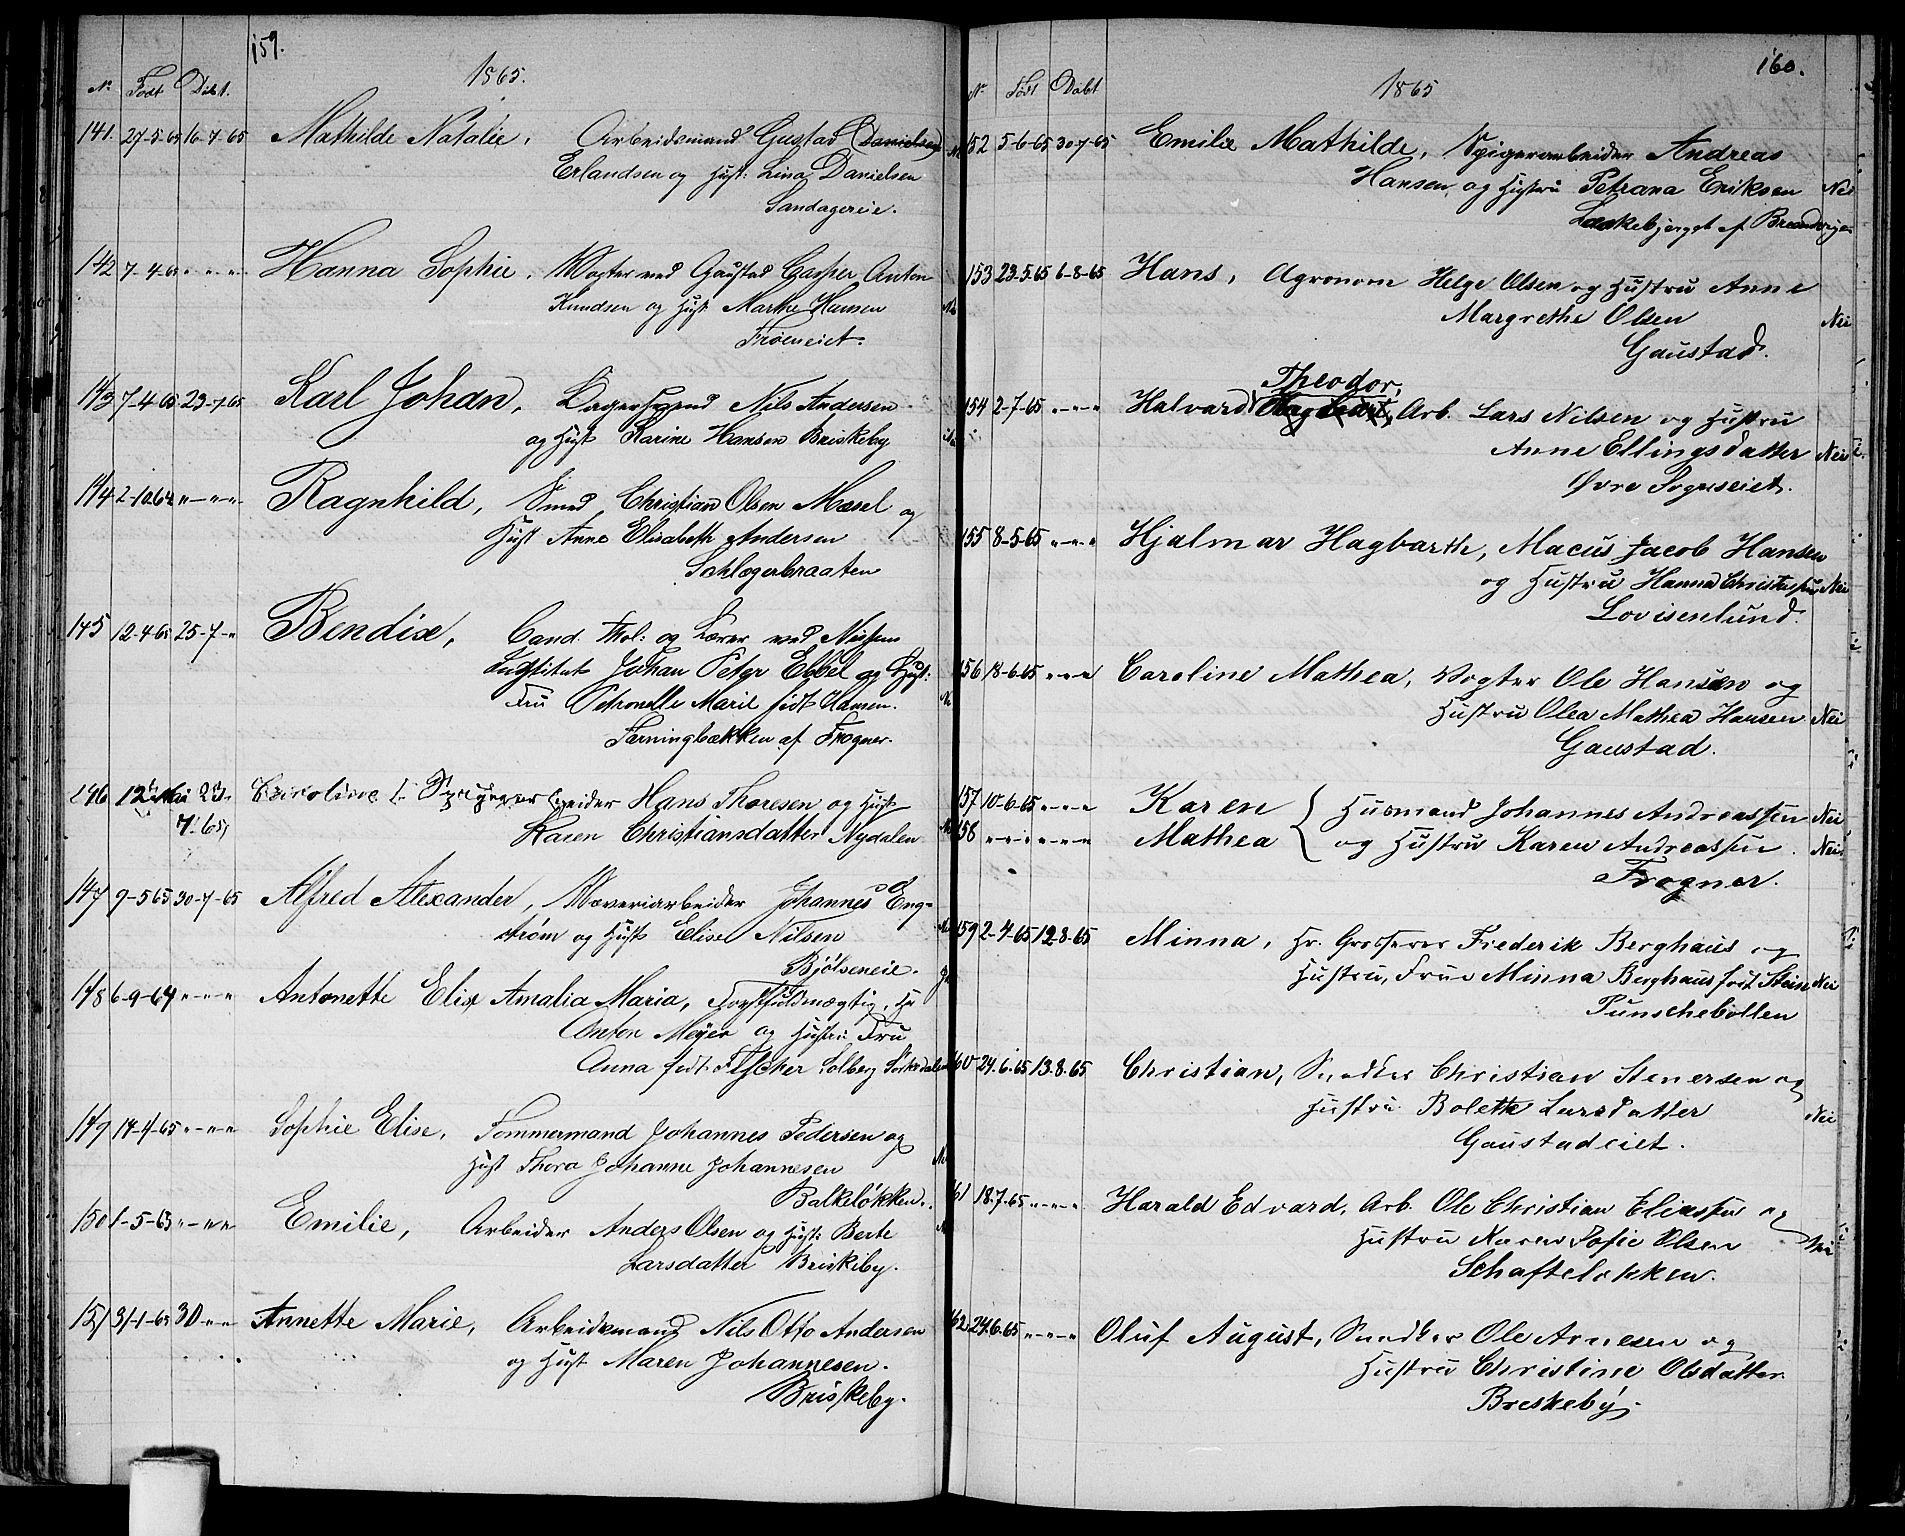 159.
1865.
No Født Døbt.
141. 27-5-65 16-7-65 Mathilde Natalie, Arbeidsmand Gustad (Danielsen)
Erlandsen og Hust: Lina Danielsen
Sandagereie.
142 7-4-65 " " " Hanna Sophie, Vogter ved Gaustad Casper Anton
Knudsen og Hust Marthe Hansen
Frøeneiet.
143 7-4-65 23-7-65 Karl Johan, Nils Andersen
og Hust Karine Hansen Briskeby
144 2-10-64 "-"-" Ragnhild, Smed Christian Olsen Mæsel og
Hust Anne Elisabeth Andersen
Schlægerbraaten
145 12-4-65 25-7-" Bendixe, Cand. Thol: og Lærer ved Nissens
Institut Johan Peter Ebbel og Hust:
Fru Petronelle Marie født Hansen.
Terningbækken af Frogner.
146 12 Mai 23- Hans Thoresen og Hust
7-65, Karen Christiansdatter Nydalen
147 9-5-65 30-7-65 Alfred Alexander, Væveriarbeider Johannes Eng-
strøm og Hust Elise Nilsen
Bjølseneie.
148 6-9-64 "-"-" Antonette Elise Amalia Maria, Forstfuldmægtig, Hr
Anton Meyer og Hustru Fru
Anna født Fischer Solberg Sørkedalen
149 14-4-65 "-"-" Sophie Elise, Tømmermand Johannes Pedersen og
Hust Thora Johanne Johannesen
Balkeløkken.
150 1-5-65 "-"-" Emilie, Arbeider Anders Olsen og Hust: Berte
Larsdatter Briskeby.
151 31-1-65 30-"-" Annette Marie, Arbeidsmand Nils Otto Andersen
og Hust Maren Johannesen.
Briskeby.
160.
1865
No Født Døbt
152 5-6-65 30-7-65 Emilie Mathilde, Spigerarbeider Andreas
Hansen og Hustru Petrana Eriksen Nei
Løkkebjerget af
153 23-5-65 6-8-65 Hans, Agronom Helge Olsen og Hustru Anne
Margrethe Olsen Nei
Gaustad.
Theodor,
154 2-7-65 "-"-" Halvard Arb. Lars Nilsen og Hustru
Anne Ellingsdatter Nei
Øvre Fogneseiet.
155 8-5-65 "-"-" Hjalmar Hagbarth, Macus Jacob Hansen
og Hustru Hanna Christensen Nei
Lovisenlund.
156 18-6-65 "-"-" Caroline Mathea, Vogter Ole Hansen og
Hustru Olea Mathea Hansen Nei
Gaustad.
157 10-6-65 "-"-" Karen { Husmand Johannes Andreassen Nei
158 "-"-" "-"-" Mathea { og Hustru Karen Andreassen. Nei
Frogner.
159 2-4-65 12-8-65 Minna, Hr. Grosserer Frederik Berghaus og
Hustru, Frue Minna Berghaus født Stein Nei
Punschebollen
160 24-6-65 13-8-65 Christian, Snedker Christian Stenersen og
Hustru Bolette Larsdatter Nei
Gaustadeiet.
161 18-7-65 "-"-" Harald Edvard, Arb. Ole Christian Eliassen og
Hustru Karen Sofie Olsen Nei
Schafteløkken.
162 24-6-65 "-"-" Oluf August, Snedker Ole Arnesen og
Hustru Christine Olsdatter
Breskeby.